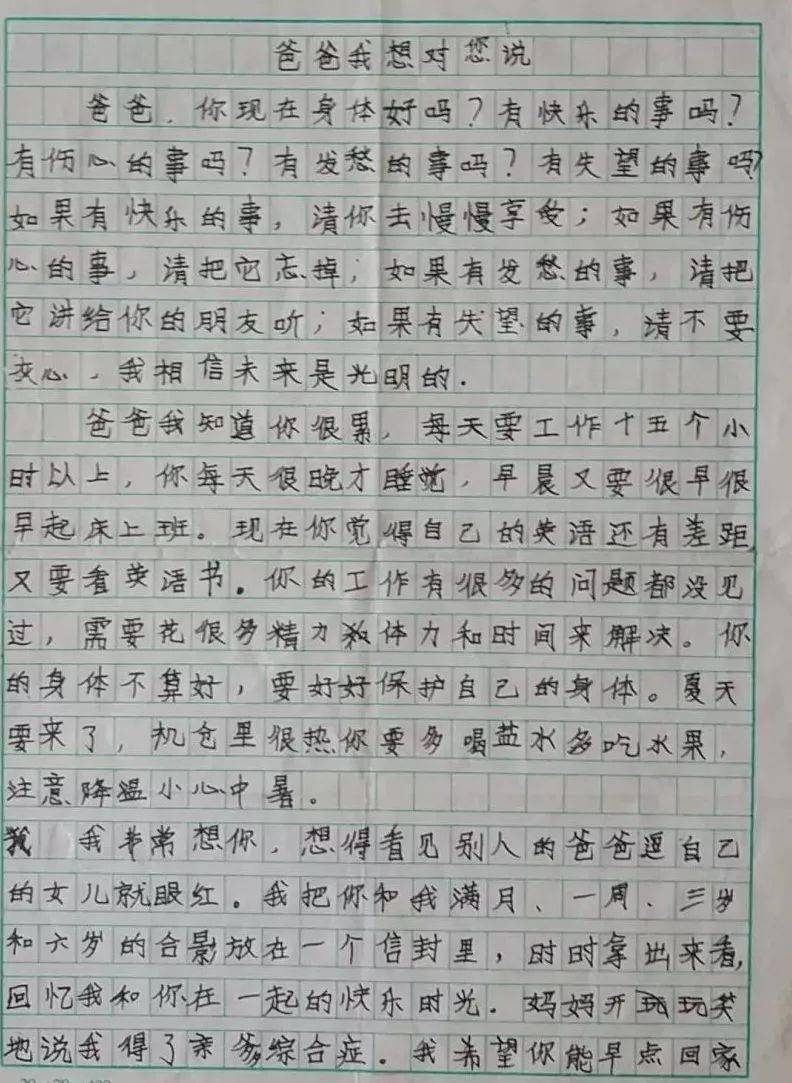 爸爸我想对您说
爸爸，你现在身体好吗？有快乐的事吗？
有伤心的事吗？有发愁的事吗？有失望的事吗？
如果有快乐的事，请你去慢慢享受；如果有伤
心的事，请把它忘掉；如果有发愁的事，请把
它讲给你的朋友听；如果有失望的事，请不要
灰心，我相信未来是光明的．
爸爸我知道你很累，每天要工作十五个小
时以上，你每天很晚才睡觉，早晨又要很早很
早起床上班。现在你觉得自己的英语还有差距，
又要看英语书。你的工作有很多的问题都没见
过，需要花很多精力和体力和时间来解决。你
的身体不算好，要好好保护自己的身体。夏天
要来了，机仓里很热你要多喝盐水多吃水果，
注意降温小心中暑。
我非常想你，想得看见别人的爸爸逗自己
的女儿就眼红。我把你和我满月、一周、三岁
和六岁的合影放在一个信封里，时时拿出来看，
回忆我和你在一起的快乐时光．妈妈开玩笑
地说我得了亲爹综合症。我希望你能早点回家